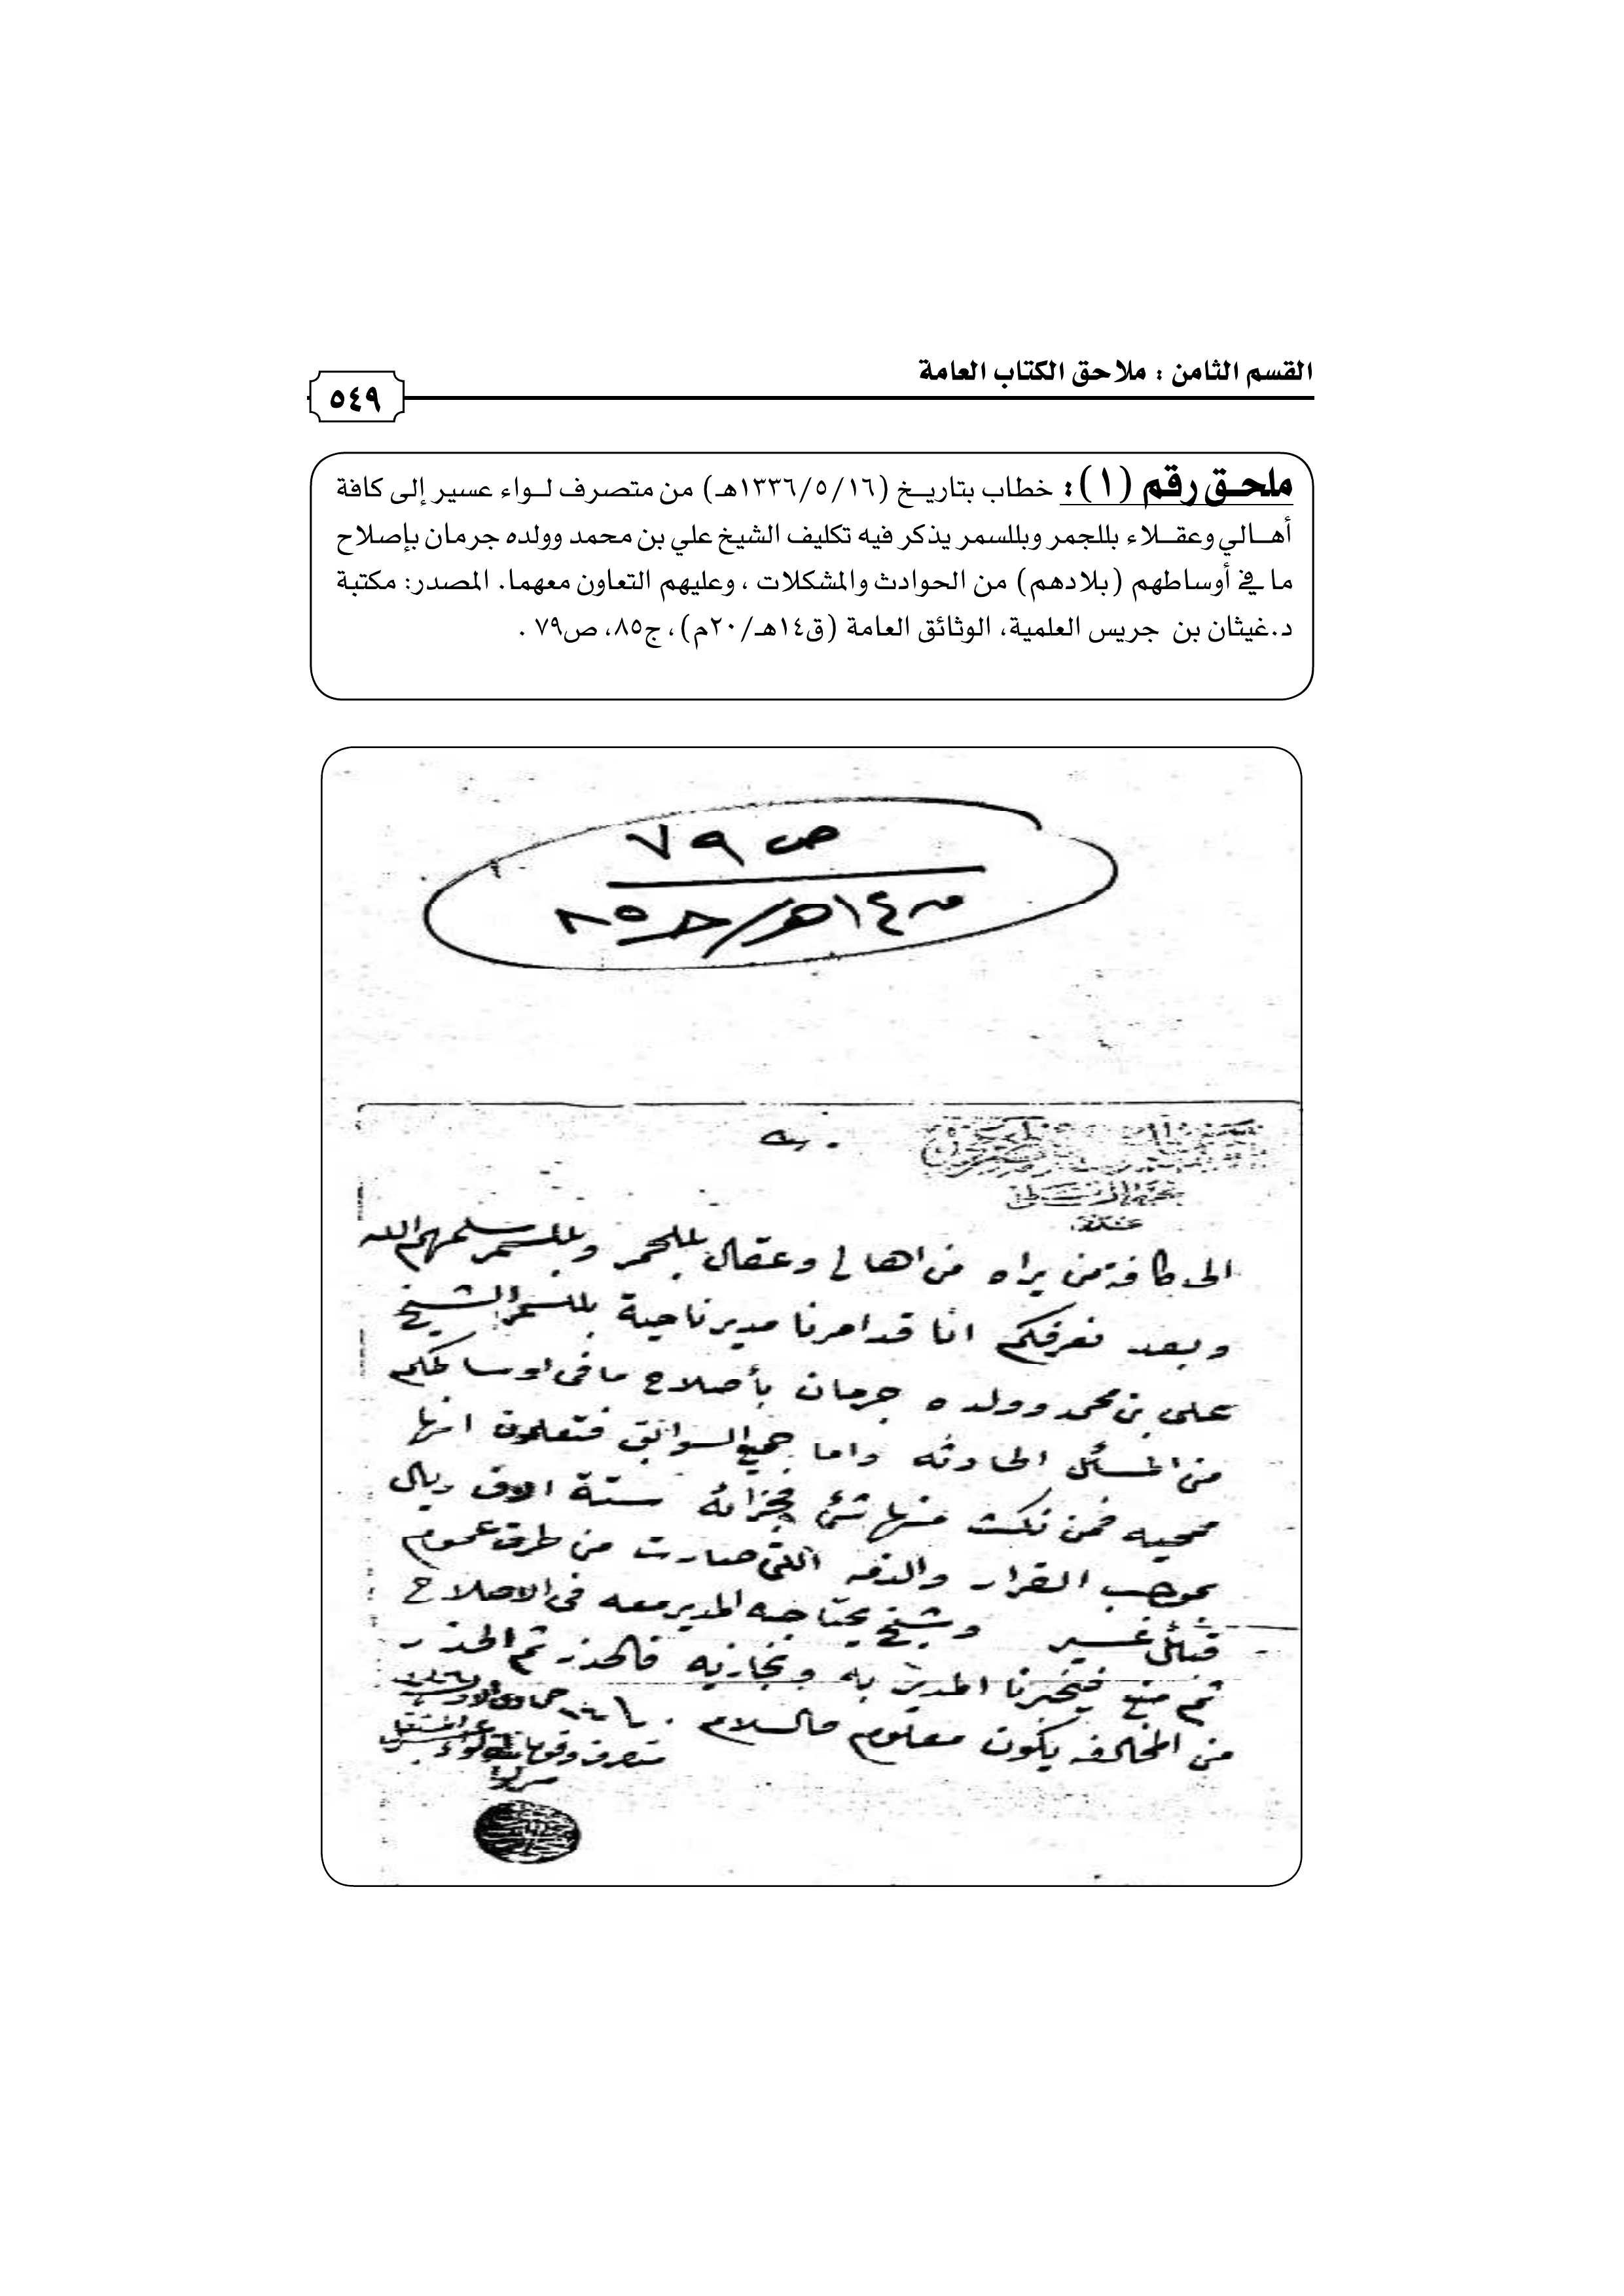 القسم الثامن : ملاحق الكتاب العامة
٥٤٩
ملحـق رقم (١): خطاب بتاريـخ (١٣٣٦/٥/١٦هـ) من متصرف لـواء عسير إلى كافة
أهــالي وعقــلاء بللجمر وبللسمر يذكر فيه تكليف الشيخ علي بن محمد وولده جرمان بإصلاح
ما في أوساطهم (بلادهم) من الحوادث والمشكلات ، وعليهم التعاون معهما. المصدر: مكتبة
د.غيثان بن جريس العلمية، الوثائق العامة (ق١٤هـ/٢٠م)، ج٨٥، ص٧٩ .
ص ٧٩
ق ١٤هـ/ج ٨٥
الى كافة من يراه من اهالي وعقال بللحمر وبللسمر سلمهم الله
وبعد نعرفكم انا قد امرنا مدير ناحية بللسمر الشيخ
على بن محمد وولده جرمان بأصلاح ما فى اوساطكم
من المسئل الحادثه واما جميع السوابق فتعلمون انها
ممحيه فمن نكث منها شئ فجزائه ستة الاف ريال
بموجب القرار والذمه اللتى صارت من طرف عموم
قبائل عسير وشيخ يحتاجه المدير معه فى الاصلاح
ثم منع فيخبرنا المدير به ونجازيه فالحذر ثم الحذر
من المخالفه يكون معلوم والسلام .